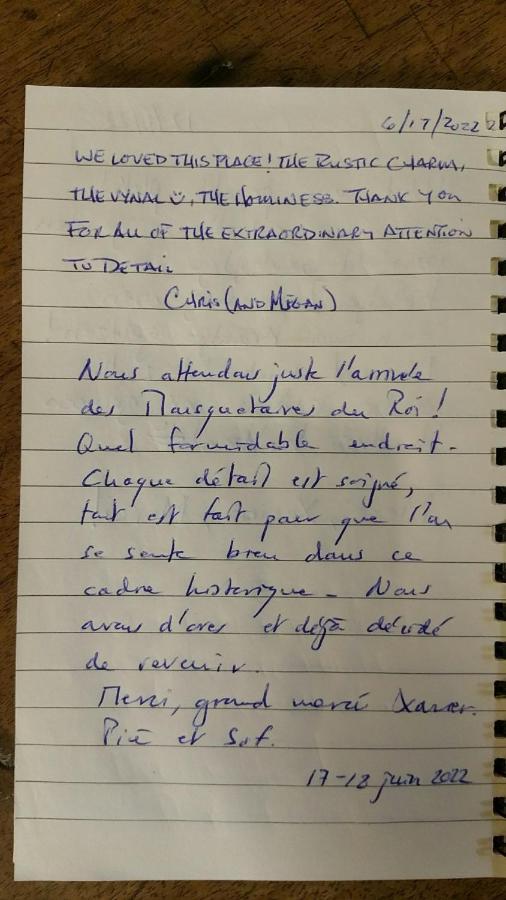 6/17/2022
WE LOVED THIS PLACE! THE RUSTIC CHARM,
THE VYNAL, THE HOMINESS. THANK YOU
FOR ALL OF THE EXTRAORDINARY ATTENTION
TO DETAIL
CHRIS (AND MEGAN)
Nous attendons juste l'arrivée
des Mousquetaires du Roi!
Quel formidable endroit.
Chaque détail est soigné,
tout est fait pour que l'on
se sente bien dans ce
cadre historique - Nous
avons d'ores et déjà décidé
de revenir.
Merci, grand merci Xavier.
et
17-18 juin 2022